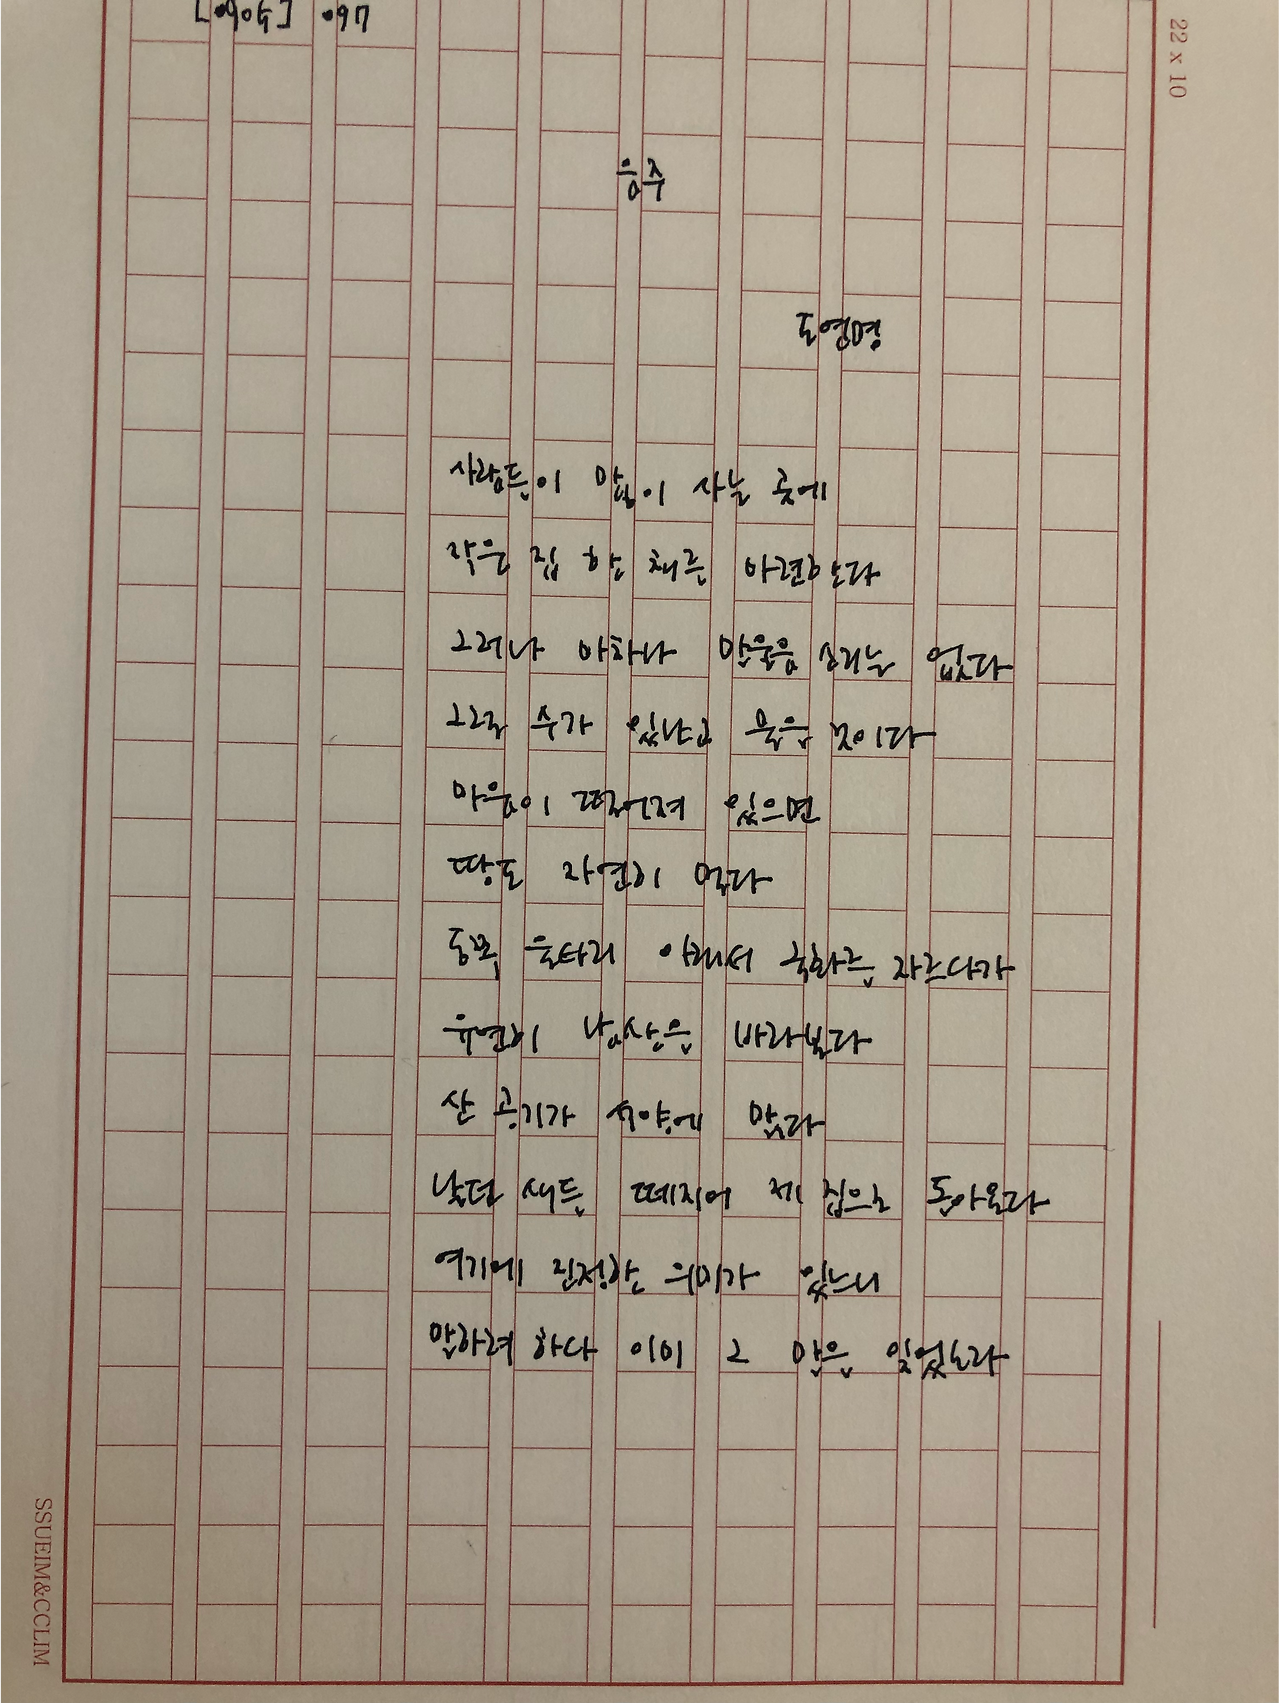 22 x 10
음주
도연명
사람들이 많이 사는 곳에
작은 집 한 채를 마련한다
그러나 마차나 말울음 소리는 없다
그럴 수가 있냐고 묻을 것이다
마음이 떨어져 있으면
땅도 자연히 멀다
동쪽 울타리 아래서 국화를 자르다가
유연히 남산을 바라본다
산 공기가 석양에 맑다
날던 새들 떼지어 제 집으로 돌아온다
여기에 진정한 의미가 있느니
말하려 하다 이미 그 말을 잊었노라
SSUEIM&CCLIM